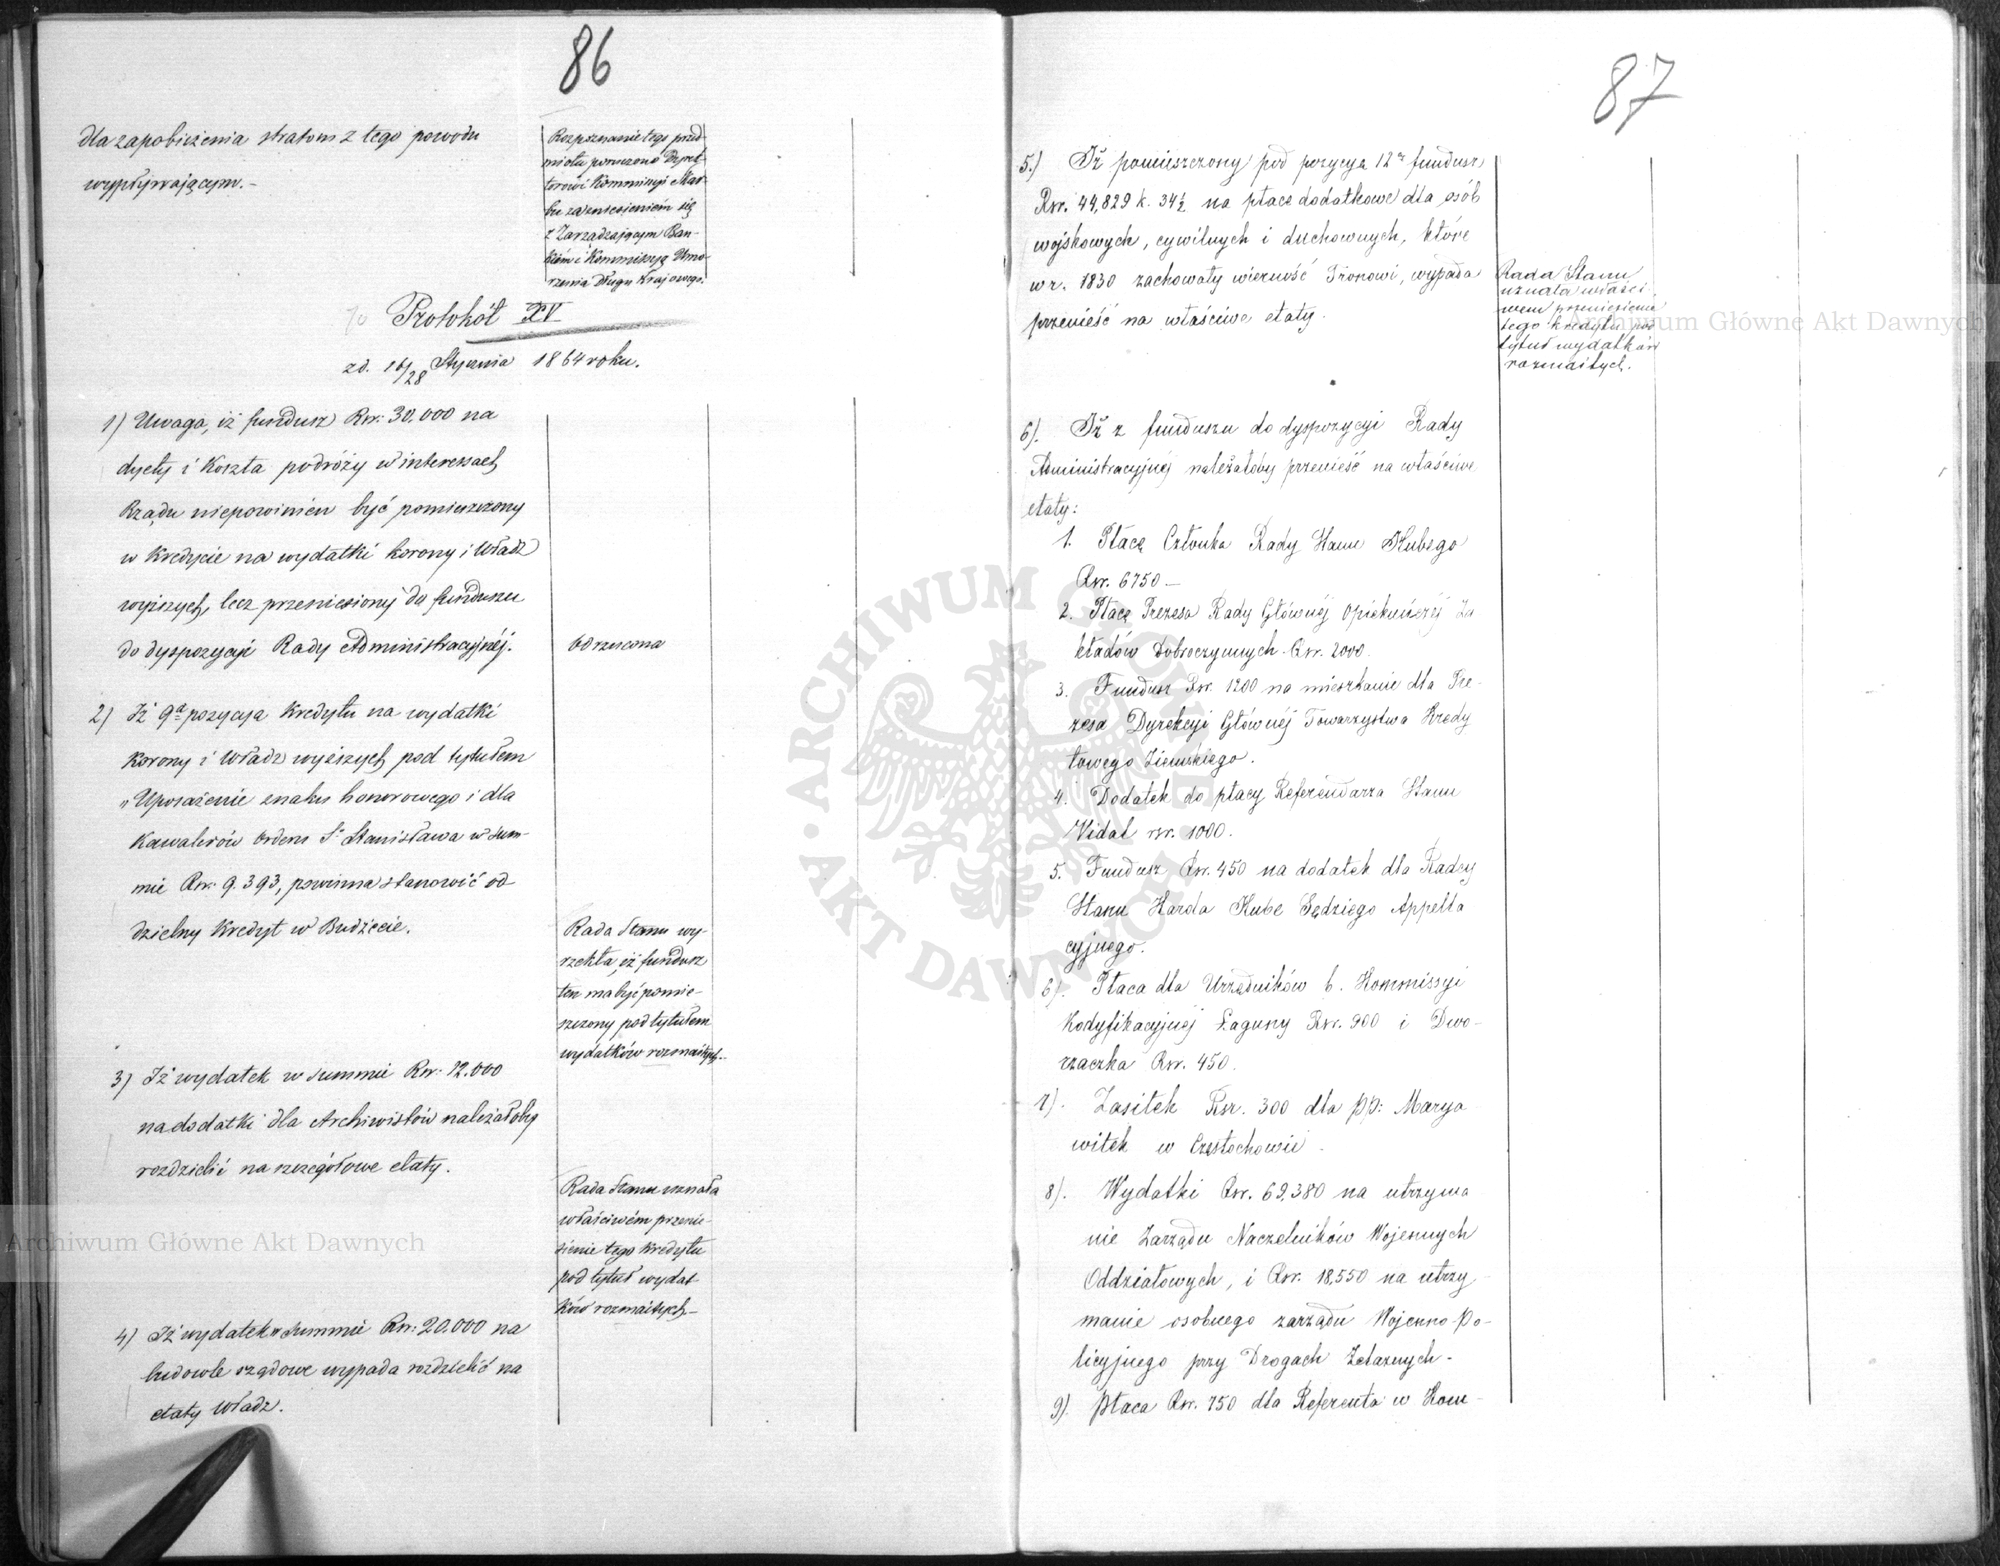 86
dla zapobieżenia stratom z tego powodu
wypływającym.-
Rozpoznanie tego przed-
miotu poruczono Dyrek-
torowi Kommissyi Skar-
bu za zniesieniem się
z Zarządzającym Ban-
kiem i Kommissyą Umo-
rzenia Długu Krajowego.
Protokół XV
zd. 16/28 Stycznia 1864 roku.
1) Uwaga, iż fundusz Rsr: 30,000 na
dyety i koszta podróży w interessach
Rządu niepowinien być pomieszczony
w Kredycie na wydatki korony i Władz
wyższych, lecz przeniesiony do funduszu
do dyspozycyi Rady Administracyjnéj.
odrzucona
2) Iż 9ª pozycya Kredytu na wydatki
Korony i Władz wyższych pod tytułem
„Uposażenie znaku honorowego i dla
Kawalerów Orderu Sº Stanisława w sum-
mie Rsr: 9.393, powinna stanowić od-
dzielny Kredyt w Budżecie.
Rada Stanu wy-
rzekła, iż fundusz
ten ma być pomie-
szczony pod tytułem
wydatków rozmaitych.-
3) Iż wydatek w summie Rsr: 12.000
na dodatki dla Archiwistów należałoby
rozdzielić na szczegółowe etaty.
Rada Stanu uznała
właściwém przenie-
sienie tego Kredytu
pod tytuł wydat-
ków rozmaitych.-
4) Iż wydatek w summie Rsr: 20.000 na
budowle rządowe wypada rozdzielić na
etaty Władz.
87
5.) Iż pomieszczony pod pozycyą 12ª fundusz
Rsr. 44,829 k. 34½ na płace dodatkowe dla osób
wojskowych, cywilnych i duchownych, które
w r. 1830 zachowały wierność Tronowi, wypada
przenieść na właściwe etaty.
Rada Stanu
uznała właści-
wem przeniesienie
tego kredytu pod
tytuł wydatków
rozmaitych.
6). Iż z funduszu do dyspozycyi Rady
Administracyjnéj należałoby przenieść na właściwe
etaty:
1. Płacę Członka Rady Stanu Hubego
Rsr. 6750 —
2. Płacę Prezesa Rady Głównéj Opiekuńczéj Za
kładów Dobroczynnych. Rsr. 2000.
3. Fundusz Rsr. 1200 na mieszkanie dla Pre-
zesa Dyrekcyi Głównéj Towarzystwa Kredy
towego Ziemskiego.
4. Dodatek do płacy Referendarza Stanu
Vidal rsr. 1000.
5. Fundusz Rsr. 450 na dodatek dla Radcy
Stanu Karola Hube Sędziego Appella
cyjnego.
6). Płaca dla Urzędników b. Kommissyi
Kodyfikacyjnéj Łaguny Rsr. 900 i Dwo-
rzaczka Rsr. 450.
7). Zasiłek Rsr. 300 dla pp: Marya
witek w Częstochowie.
8). Wydatki Rsr. 69,380 na utrzyma
nie Zarządu Naczelników Wojennych
Oddziałowych, i Rsr. 18,550 na utrzy-
manie osobnego zarządu Wojenno-Po-
licyjnego przy Drogach Żelaznych.
9). Płaca Rsr. 750 dla Referenta w Kom-
Archiwum Główne Akt Dawnych
Archiwum Główne Akt Dawnych
ARCHIWUM GŁÓWNE AKT DAWNYCH